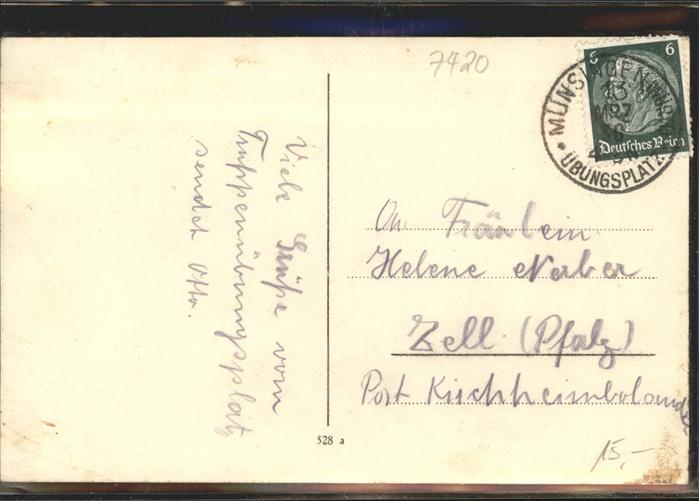 7420
6 6
Deutsches Reich
MÜNSINGEN
MRZ
ÜBUNGSPLATZ
Viele Grüße vom
Truppenübungsplatz
sendet Otto.
An Fräulein
Helene Nerber
Zell (Pfalz)
Post Kirchheimbolanden
528 a
15,-